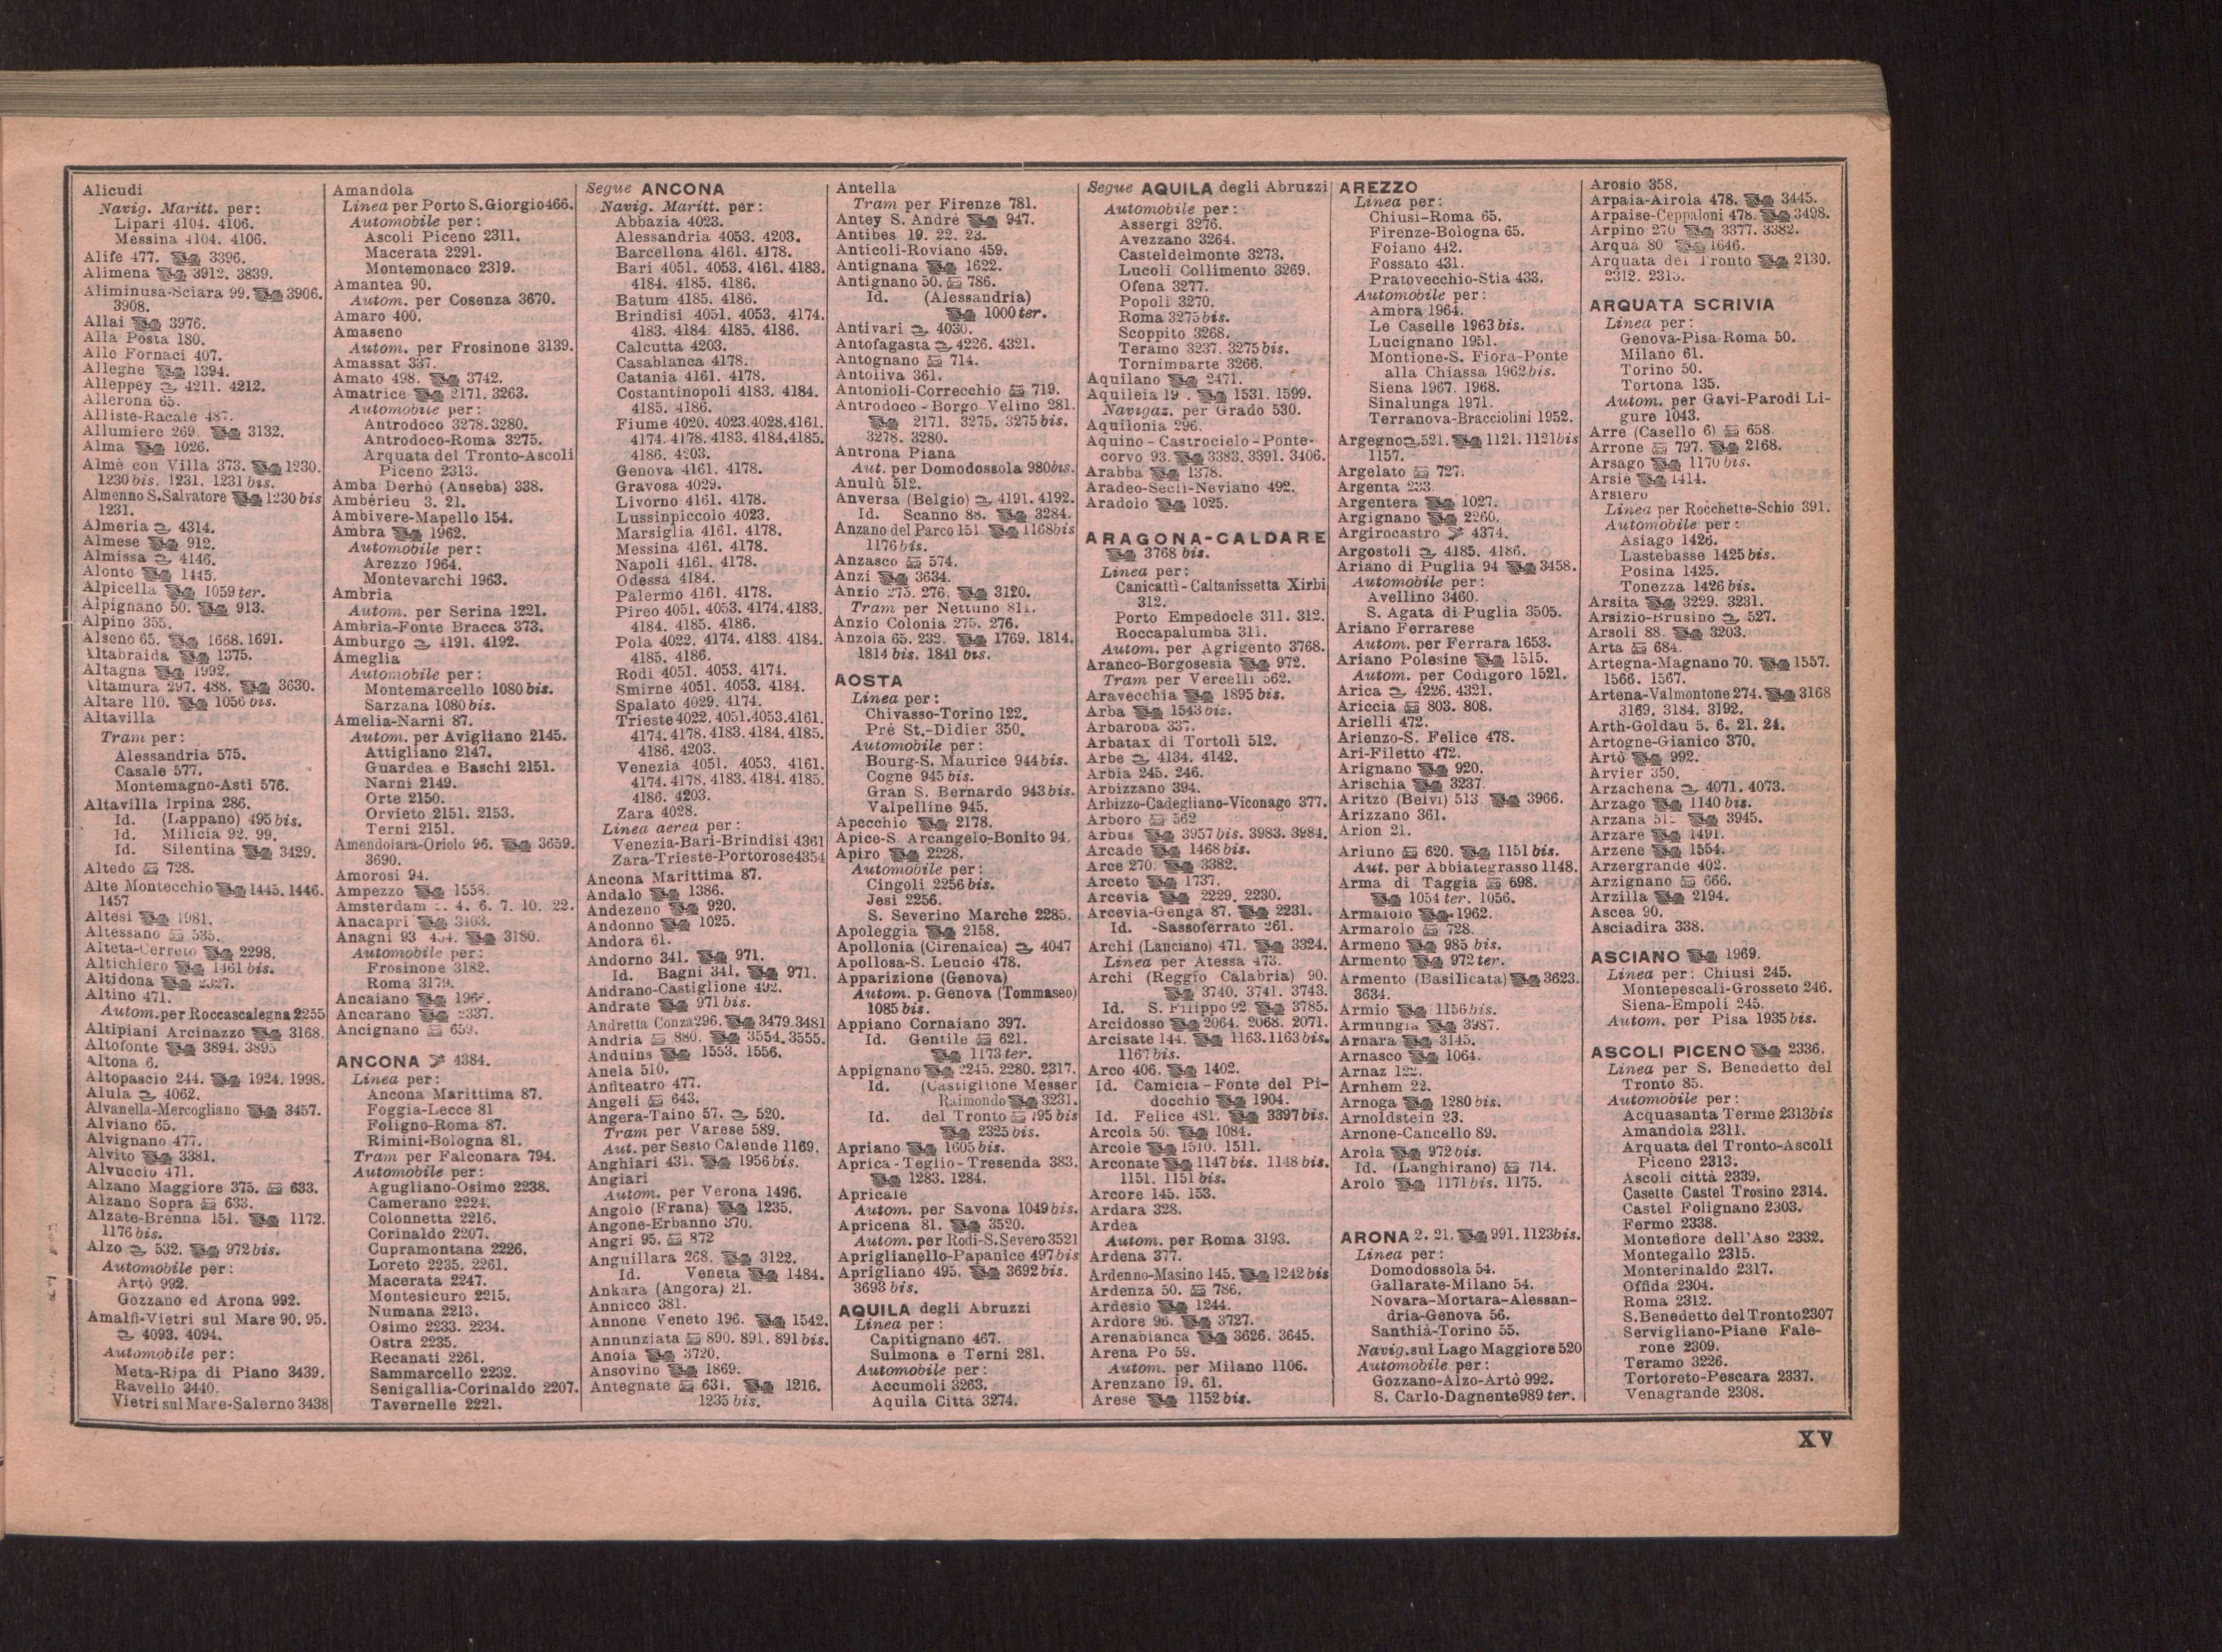 Alicudi
Navig. Maritt. per:
Lipari 4104. 4106.
Messina 4104. 4106.
Alife 477. 3396.
Alimena 3912. 3839.
Aliminusa-Sciara 99. 3906.
3908.
Allai 3976.
Alla Posta 180.
Alle Fornaci 407.
Alleghe 1394.
Alleppey 4211. 4212.
Allerona 65.
Alliste-Racale 487.
Allumiere 269. 3132.
Alma 1026.
Almè con Villa 373. 1230.
1230 bis. 1231. 1231 bis.
Almenno S. Salvatore 1230 bis
1231.
Almeria 4314.
Almese 912.
Almissa 4146.
Alonte 1445.
Alpicella 1059 ter.
Alpignano 50. 913.
Alpino 355.
Alseno 65. 1668. 1691.
Altabraida 1375.
Altagna 1992.
Altamura 297. 488. 3630.
Altare 110. 1056 bis.
Altavilla
Tram per:
Alessandria 575.
Casale 577.
Montemagno-Asti 576.
Altavilla Irpina 286.
Id. (Lappano) 495 bis.
Id. Milicia 92. 99.
Id. Silentina 3429.
Altedo 728.
Alte Montecchio 1445. 1446.
1457
Altesi 1981.
Altessano 535.
Alteta-Cerreto 2298.
Altichiero 1461 bis.
Altidona 2327.
Altino 471.
Autom. per Roccascalegna 2255
Altipiani Arcinazzo 3168.
Altofonte 3894. 3895
Altona 6.
Altopascio 244. 1924. 1998.
Alula 4062.
Alvanella-Mercogliano 3457.
Alviano 65.
Alvignano 477.
Alvito 3381.
Alvuccio 471.
Alzano Maggiore 375. 633.
Alzano Sopra 633.
Alzate-Brenna 151. 1172.
1176 bis.
Alzo 532. 972 bis.
Automobile per:
Artò 992.
Gozzano ed Arona 992.
Amalfi-Vietri sul Mare 90. 95.
4093. 4094.
Automobile per:
Meta-Ripa di Piano 3439.
Ravello 3440.
Vietri sul Mare-Salerno 3438
Amandola
Linea per Porto S. Giorgio 466.
Automobile per:
Ascoli Piceno 2311.
Macerata 2291.
Montemonaco 2319.
Amantea 90.
Autom. per Cosenza 3670.
Amaro 400.
Amaseno
Autom. per Frosinone 3139.
Amassat 337.
Amato 498. 3742.
Amatrice 2171. 3263.
Automobile per:
Antrodoco 3278. 3280.
Antrodoco-Roma 3275.
Arquata del Tronto-Ascoli
Piceno 2313.
Amba Derhò (Anseba) 338.
Ambérieu 3. 21.
Ambivere-Mapello 154.
Ambra 1962.
Automobile per:
Arezzo 1964.
Montevarchi 1963.
Ambria
Autom. per Serina 1221.
Ambria-Fonte Bracca 373.
Amburgo 4191. 4192.
Ameglia
Automobile per:
Montemarcello 1080 bis.
Sarzana 1080 bis.
Amelia-Narni 87.
Autom. per Avigliano 2145.
Attigliano 2147.
Guardea e Baschi 2151.
Narni 2149.
Orte 2150.
Orvieto 2151. 2153.
Terni 2151.
Amendolara-Oriolo 96. 3659.
3690.
Amorosi 94.
Ampezzo 1558.
Amsterdam 4. 6. 7. 10. 22.
Anacapri 3103.
Anagni 93 3180.
Automobile per:
Frosinone 3182.
Roma 3179.
Ancaiano
Ancarano 2337.
Ancignano 659.
ANCONA 4384.
Linea per:
Ancona Marittima 87.
Foggia-Lecce 81
Foligno-Roma 87.
Rimini-Bologna 81.
Tram per Falconara 794.
Automobile per:
Agugliano-Osimo 2238.
Camerano 2224.
Colonnetta 2216.
Corinaldo 2207.
Cupramontana 2226.
Loreto 2235. 2261.
Macerata 2247.
Montesicuro 2215.
Numana 2213.
Osimo 2233. 2234.
Ostra 2235.
Recanati 2261.
Sammarcello 2232.
Senigallia-Corinaldo 2207.
Tavernelle 2221.
Segue ANCONA
Navig. Maritt. per:
Abbazia 4023.
Alessandria 4053. 4203.
Barcellona 4161. 4178.
Bari 4051. 4053. 4161. 4183.
4184. 4185. 4186.
Batum 4185. 4186.
Brindisi 4051. 4053. 4174.
4183. 4184. 4185. 4186.
Calcutta 4203.
Casablanca 4178.
Catania 4161. 4178.
Costantinopoli 4183. 4184.
4185. 4186.
Fiume 4020. 4023. 4028. 4161.
4174. 4178. 4183. 4184. 4185.
4186. 4203.
Genova 4161. 4178.
Gravosa 4029.
Livorno 4161. 4178.
Lussinpiccolo 4023.
Marsiglia 4161. 4178.
Messina 4161. 4178.
Napoli 4161. 4178.
Odessa 4184.
Palermo 4161. 4178.
Pireo 4051. 4053. 4174. 4183.
4184. 4185. 4186.
Pola 4022. 4174. 4183. 4184.
4185. 4186.
Rodi 4051. 4053. 4174.
Smirne 4051. 4053. 4184.
Spalato 4029. 4174.
Trieste 4022. 4051. 4053. 4161.
4174. 4178. 4183. 4184. 4185.
4186. 4203.
Venezia 4051. 4053. 4161.
4174. 4178. 4183. 4184. 4185.
4186. 4203.
Zara 4028.
Linea aerea per:
Venezia-Bari-Brindisi 4361
Zara-Trieste-Portorose 4354
Ancona Marittima 87.
Andalo 1386.
Andezeno 920.
Andonno 1025.
Andora 61.
Andorno 341. 971.
Id. Bagni 341. 971.
Andrano-Castiglione 492.
Andrate 971 bis.
Andretta Conza 296. 3479. 3481
Andria 880. 3554. 3555.
Anduins 1553. 1556.
Anela 510.
Anfiteatro 477.
Angeli 643.
Angera-Taino 57. 520.
Tram per Varese 589.
Aut. per Sesto Calende 1169.
Anghiari 431. 1956 bis.
Angiari
Autom. per Verona 1496.
Angolo (Frana) 1235.
Angone-Erbanno 370.
Angri 95. 872
Anguillara 268. 3122.
Id. Veneta 1484.
Ankara (Angora) 21.
Annicco 381.
Annone Veneto 196. 1542.
Annunziata 890. 891. 891 bis.
Anoia 3720.
Ansovino 1869.
Antegnate 631. 1216.
1235 bis.
Antella
Tram per Firenze 781.
Antey S. André 947.
Antibes 19. 22. 23.
Anticoli-Roviano 459.
Antignana 1622.
Antignano 50. 786.
Id. (Alessandria)
1000 ter.
Antivari 4030.
Antofagasta 4226. 4321.
Antognano 714.
Antoliva 361.
Antonioli-Correcchio 719.
Antrodoco - Borgo Velino 281.
2171. 3275. 3275 bis.
3278. 3280.
Antrona Piana
Aut. per Domodossola 980 bis.
Anulù 512.
Anversa (Belgio) 4191. 4192.
Id. Scanno 88. 3284.
Anzano del Parco 151. 1168 bis
1176 bis.
Anzasco 574.
Anzi 3634.
Anzio 275. 276. 3120.
Tram per Nettuno 811.
Anzio Colonia 275. 276.
Anzola 65. 232. 1769. 1814.
1814 bis. 1841 bis.
AOSTA
Linea per:
Chivasso-Torino 122.
Pré St.-Didier 350.
Automobile per:
Bourg-S. Maurice 944 bis.
Cogne 945 bis.
Gran S. Bernardo 943 bis.
Valpelline 945.
Apecchio 2178.
Apice-S. Arcangelo-Bonito 94.
Apiro 2228.
Automobile per:
Cingoli 2256 bis.
Jesi 2256.
S. Severino Marche 2285.
Apoleggia 2158.
Apollonia (Cirenaica) 4047
Apollosa-S. Leucio 478.
Apparizione (Genova)
Autom. p. Genova (Tommaseo)
1085 bis.
Appiano Cornaiano 397.
Id. Gentile 621.
1173 ter.
Appignano 2245. 2280. 2317.
Id. (Castiglione Messer
Raimondo 3231.
Id. del Tronto 795 bis
2325 bis.
Apriano 1605 bis.
Aprica - Teglio - Tresenda 383.
1283. 1284.
Apricale
Autom. per Savona 1049 bis.
Apricena 81. 3520.
Autom. per Rodi-S. Severo 3521
Apriglianello-Papanice 497 bis
Aprigliano 495. 3692 bis.
3693 bis.
AQUILA degli Abruzzi
Linea per:
Capitignano 467.
Sulmona e Terni 281.
Automobile per:
Accumoli 3263.
Aquila Città 3274.
Segue AQUILA degli Abruzzi
Automobile per:
Assergi 3276.
Avezzano 3264.
Casteldelmonte 3273.
Lucoli Collimento 3269.
Ofena 3277.
Popoli 3270.
Roma 3275 bis.
Scoppito 3268.
Teramo 3237. 3275 bis.
Tornimparte 3266.
Aquilano 2471.
Aquileia 19 . 1531. 1599.
Navigaz. per Grado 530.
Aquilonia 296.
Aquino - Castrocielo - Ponte-
corvo 93. 3383. 3391. 3406.
Arabba 1378.
Aradeo-Seclì-Neviano 492.
Aradolo 1025.
ARAGONA-CALDARE
3768 bis.
Linea per:
Canicatti - Caltanissetta Xirbi
312.
Porto Empedocle 311. 312.
Roccapalumba 311.
Autom. per Agrigento 3768.
Aranco-Borgosesia 972.
Tram per Vercelli 562.
Aravecchia 1895 bis.
Arba 1543 bis.
Arbaroba 337.
Arbatax di Tortolì 512.
Arbe 4134. 4142.
Arbia 245. 246.
Arbizzano 394.
Arbizzo-Cadegliano-Viconago 377.
Arboro 562
Arbus 3957 bis. 3983. 3984.
Arcade 1468 bis.
Arce 270. 3382.
Arceto 1737.
Arcevia 2229. 2230.
Arcevia-Genga 87. 2231.
Id. -Sassoferrato 261.
Archi (Lanciano) 471. 3324.
Linea per Atessa 473.
Archi (Reggio Calabria) 90.
3740. 3741. 3743.
Id. S. Filippo 92. 3785.
Arcidosso 2064. 2068. 2071.
Arcisate 144. 1163. 1163 bis.
1167 bis.
Arco 406. 1402.
Id. Camicia - Fonte del Pi-
docchio 1904.
Id. Felice 481. 3397 bis.
Arcola 50. 1084.
Arcole 1510. 1511.
Arconate 1147 bis. 1148 bis.
1151. 1151 bis.
Arcore 145. 153.
Ardara 328.
Ardea
Autom. per Roma 3193.
Ardena 377.
Ardenno-Masino 145. 1242 bis
Ardenza 50. 786.
Ardesio 1244.
Ardore 96. 3727.
Arenabianca 3626. 3645.
Arena Po 59.
Autom. per Milano 1106.
Arenzano 19. 61.
Arese 1152 bis.
AREZZO
Linea per:
Chiusi-Roma 65.
Firenze-Bologna 65.
Foiano 442.
Fossato 431.
Pratovecchio-Stia 433.
Automobile per:
Ambra 1964.
Le Caselle 1963 bis.
Lucignano 1951.
Montione-S. Fiora-Ponte
alla Chiassa 1962 bis.
Siena 1967. 1968.
Sinalunga 1971.
Terranova-Bracciolini 1952.
Argegno 521. 1121. 1121 bis
1157.
Argelato 727.
Argenta 233.
Argentera 1027.
Argignano 2260.
Argirocastro 4374.
Argostoli 4185. 4186.
Ariano di Puglia 94 3458.
Automobile per:
Avellino 3460.
S. Agata di Puglia 3505.
Ariano Ferrarese
Autom. per Ferrara 1653.
Ariano Polesine 1515.
Autom. per Codigoro 1521.
Arica 4226. 4321.
Ariccia 803. 808.
Arielli 472.
Arienzo-S. Felice 478.
Ari-Filetto 472.
Arignano 920.
Arischia 3237.
Aritzo (Belvì) 513. 3966.
Arizzano 361.
Arlon 21.
Arluno 620. 1151 bis.
Aut. per Abbiategrasso 1148.
Arma di Taggia 698.
1054 ter. 1056.
Armaiolo 1962.
Armarolo 728.
Armeno 985 bis.
Armento 972 ter.
Armento (Basilicata) 3623.
3634.
Armio 1156 bis.
Armungia 3987.
Arnara 3145.
Arnasco 1064.
Arnaz 122.
Arnhem 22.
Arnoga 1280 bis.
Arnoldstein 23.
Arnone-Cancello 89.
Arola 972 bis.
Id. (Langhirano) 714.
Arolo 1171 bis. 1175.
ARONA 2. 21. 991. 1123 bis.
Linea per:
Domodossola 54.
Gallarate-Milano 54.
Novara-Mortara-Alessan-
dria-Genova 56.
Santhià-Torino 55.
Navig. sul Lago Maggiore 520
Automobile per:
Gozzano-Alzo-Artò 992.
S. Carlo-Dagnente 989 ter.
Arosio 358.
Arpaia-Airola 478. 3445.
Arpaise-Ceppaloni 478. 3498.
Arpino 270 3377. 3382.
Arquà 80 1646.
Arquata del Tronto 2130.
2312. 2313.
ARQUATA SCRIVIA
Linea per:
Genova-Pisa Roma 50.
Milano 61.
Torino 50.
Tortona 135.
Autom. per Gavi-Parodi Li-
gure 1043.
Arre (Casello 6) 658.
Arrone 797. 2168.
Arsago 1170 bis.
Arsie 1414.
Arsiero
Linea per Rocchette-Schio 391.
Automobile per:
Asiago 1426.
Lastebasse 1425 bis.
Posina 1425.
Tonezza 1426 bis.
Arsita 3229. 3231.
Arsizio-Brusino 527.
Arsoli 88. 3203.
Arta 684.
Artegna-Magnano 70. 1557.
1566. 1567.
Artena-Valmontone 274. 3168
3169. 3184. 3192.
Arth-Goldau 5. 6. 21. 24.
Artogne-Gianico 370.
Artò 992.
Arvier 350.
Arzachena 4071. 4073.
Arzago 1140 bis.
Arzana 3945.
Arzarè 1491.
Arzene 1554.
Arzergrande 402.
Arzignano 666.
Arzilla 2194.
Ascea 90.
Asciadira 338.
ASCIANO 1969.
Linea per: Chiusi 245.
Montepescali-Grosseto 246.
Siena-Empoli 245.
Autom. per Pisa 1935 bis.
ASCOLI PICENO 2336.
Linea per S. Benedetto del
Tronto 85.
Automobile per:
Acquasanta Terme 2313 bis
Amandola 2311.
Arquata del Tronto-Ascoli
Piceno 2313.
Ascoli città 2339.
Casette Castel Trosino 2314.
Castel Folignano 2303.
Fermo 2338.
Montefiore dell'Aso 2332.
Montegallo 2315.
Monterinaldo 2317.
Offida 2304.
Roma 2312.
S. Benedetto del Tronto 2307
Servigliano-Piane Fale-
rone 2309.
Teramo 3226.
Tortoreto-Pescara 2337.
Venagrande 2308.
XV